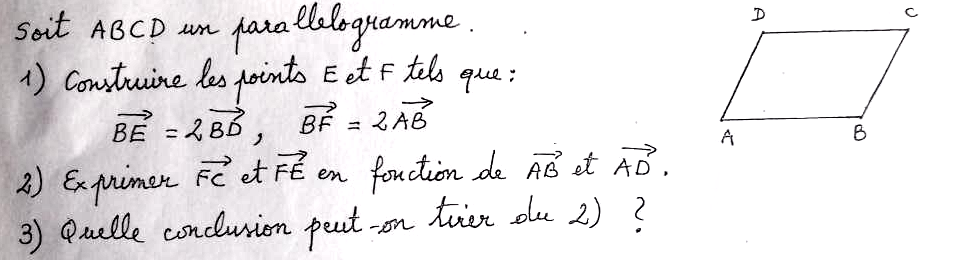 Soit ABCD un parallelogramme.
1) Construire les points E et F tels que :
$\overrightarrow{BE} = 2\overrightarrow{BD}$, $\overrightarrow{BF} = 2\overrightarrow{AB}$
2) Exprimer $\overrightarrow{FC}$ et $\overrightarrow{FE}$ en fonction de $\overrightarrow{AB}$ et $\overrightarrow{AD}$.
3) Quelle conclusion peut-on tirer du 2) ?
D C
A B